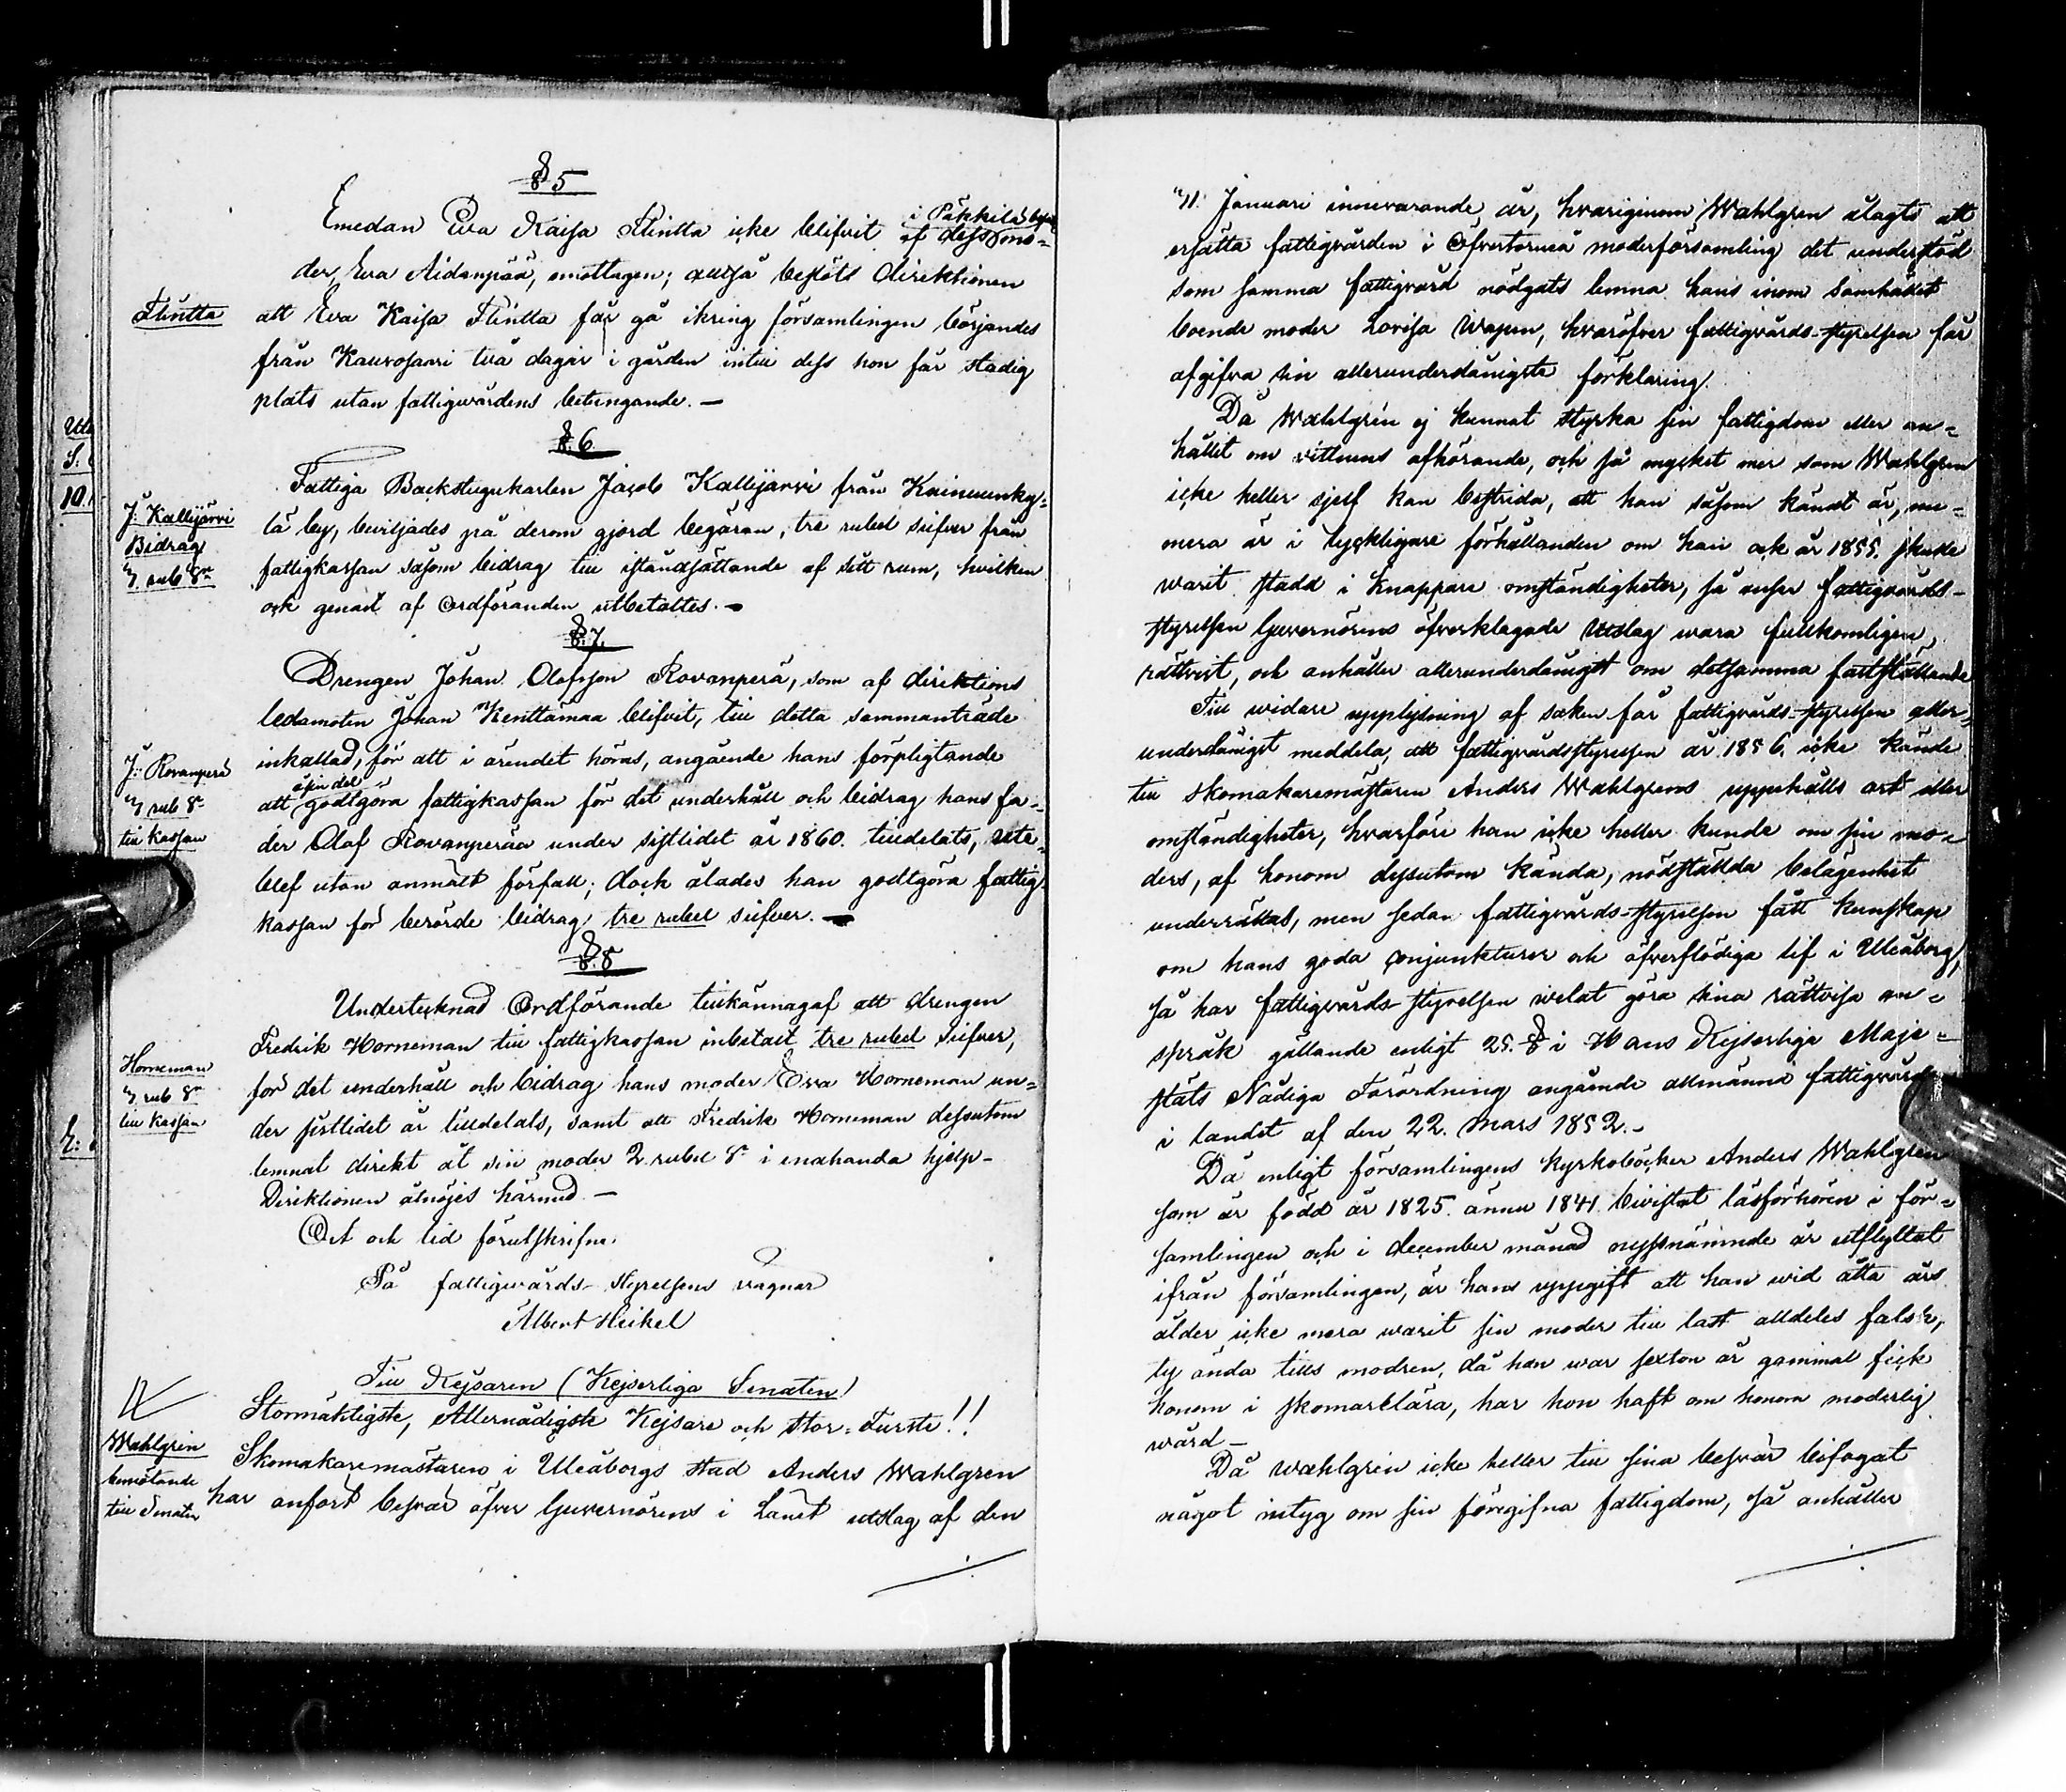 § 5
Emedan Eva Kaisa Flintta icke blifvit af dess mo-
i Pakkila by
der, Eva Aidanpää, emottagen; alltså beslöts direktionen
Flintta
att Eva Kaisa Flintta får gå ikring församlingen börjandes
från Kauvosaari två dagar i gården intill dess hon får stadig
plats utan fattigwårdens betungande. —
§. 6
Fattiga Backstugukarlen Jacob Kallijärvi från Kainuunky-
lä by, beviljades på derom gjord begäran, tre rubel silfver från
J: Kallijärvi
Bidrag
3 rub Sr
fattigkassan såsom bidrag till iståndsättande af sitt rum, hvilken
ock genast af Ordföranden utbetaltes. —
§. 7.
Drengen Johan Olofsson Rovanperä, som af direktions
ledamoten Johan Kenttämaa blifvit, till detta sammanträde
inkallad, för att i ärendet höras, angående hans förpligtande
J: Rovanperä
3 rub Sr
till kassan
å sin del
att godtgöra fattigkassan för det underhåll och bidrag hans fa-
der Olof Rovanperää under sistlidet år 1860. tilldelats, ute-
blef utan anmält förfall; dock ålades han godtgöra fattig
kassan för berörde bidrag tre rubel silfver. —
§. 8
Undertecknad Ordförande tillkännagaf att drengen
Fredrik Horneman till fattigkassan inbetalt tre rubel silfver,
Horneman
3 rub Sr
till kassan
för det underhåll och bidrag hans moder Eva Horneman un-
der sistlidet år tilldelats, samt att Fredrik Horneman dessutom
lemnat direkt åt sin moder 2 rubel Sr i enahanda hjelp-
Direktionen åtnöjes härmed. —
Ort och tid förutskrifne.
På fattigwårds-styrelsens vägnar
Albert Heikel
Till Kejsaren (Kejserliga Senaten)
Stormäktigste, Allernådigste Kejsare och Stor-Furste!!
Wahlgrén
bemötande
till Senaten
Skomakaremästaren i Uleåborgs stad Anders Wahlgren
har anfört besvär öfver Guvernörens i Länet utslag af den
11. Januari innevarande år, hvariginom Wahlgren ålagts att
ersätta fattigvården i Öfvertorneå moderförsamling det understöd
som samma fattigvård nödgats lemna hans inom Samhället
boende moder Lovisa Wapen, hvaröfver fattigvårds-styrelsen får
afgifva sin allerunderdånigste förklaring.
Då Wahlgrén ej kunnat styrka sin fattigdom eller an-
hållit om vittnens afhörande, och så mycket mer som Wahlgren
icke heller sjelf kan bestrida, att han såsom kändt är, nu-
mera är i lyckligare förhållanden om han ock år 1855. skulle
warit stadd i knappare omständigheter, så anser fattigvårds-
styrelsen Guvernörens öfverklagade Utslag wara fullkomligen
rättvist, och anhåller allerunderdånigst om detsamma fastställande
Till widare upplysning af saken får fattigvårds-styrelsen aller-
underdånigst meddela, att fattigvårdsstyrelsen år 1856. icke kände
till skomakaremästaren Anders Wahlgrens uppehålls ort eller
omständigheter, hvarföre han icke heller kunde om sin mo-
ders, af honom dessutom kända, nödställda belägenhet
underrättas, men sedan fattigvårds-styrelsen fått kunskap
om hans goda conjunkturer och öfverflödiga lif i Uleåborg,
så har fattigvårds-styrelsen welat göra sina rättvisa an-
språk gällande enligt 25. § i Hans Kejserliga Maje-
stäts Nådiga Förordning angående allmänna fattigvården
i landet af den 22. Mars 1852. -
Då enligt församlingens kyrkoböcker Anders Wahlgren
som är född år 1825. ännu 1841. bivistat läsförhören i för-
samlingen och i december månad nyssnämnde år utflyttat
ifrån församlingen, är hans uppgift att han wid åtta års
ålder icke mera warit sin moder till last alldeles falsk,
ty ända tills modren, då han war sexton år gammal fick
honom i skomarelära, har hon haft om honom moderlig
wård —
Då Wahlgrén icke heller till sina besvär bifogat
något intyg om sin föregifna fattigdom, så anhåller